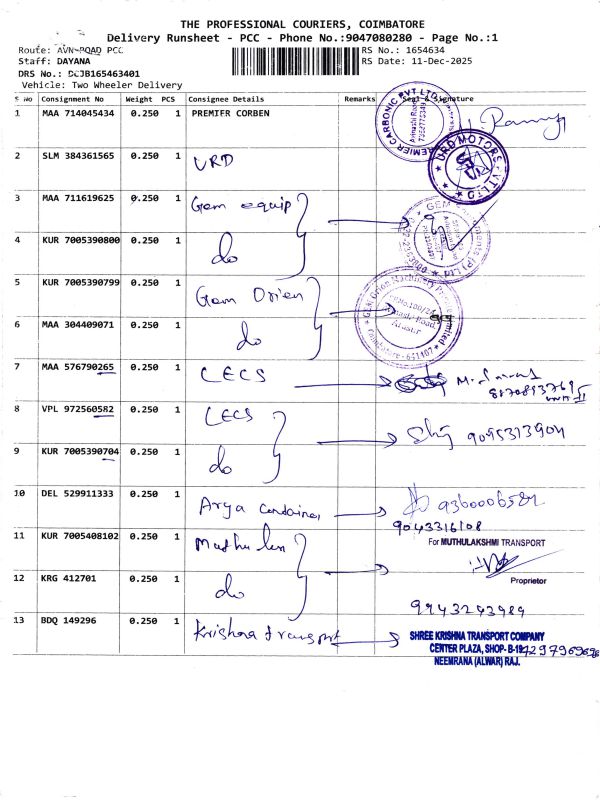 THE PROFESSIONAL COURIERS, COIMBATORE
Delivery Runsheet - PCC - Phone No.:9047080280 - Page No.:1
Route: AVN-ROAD PCC
RS No.: 1654634
Staff: DAYANA
RS Date: 11-Dec-2025
DRS No.: DCJB165463401
Vehicle: Two Wheeler Delivery
S No Consignment No Weight PCS Consignee Details Remarks Seal & Signature
1 MAA 714045434 0.250 1 PREMIER CORBEN
2 SLM 384361565 0.250 1 URD
URD MOTORS PVT LTD
3 MAA 711619625 0.250 1 Gem equip
4 KUR 7005390800 0.250 1 do
5 KUR 7005390799 0.250 1 Gem Orien
6 MAA 304409071 0.250 1 do
7 MAA 576790265 0.250 1 LECS
8 VPL 972560582 0.250 1 LECS
9095313904
9 KUR 7005390704 0.250 1 do
10 DEL 529911333 0.250 1 Arya Container
9043316108
11 KUR 7005408102 0.250 1
For MUTHULAKSHMI TRANSPORT
Proprietor
12 KRG 412701 0.250 1 do
9943243989
13 BDQ 149296 0.250 1 Krishna transport
SHREE KRISHNA TRANSPORT COMPANY
CENTER PLAZA, SHOP- B-19
NEEMRANA (ALWAR) RAJ.